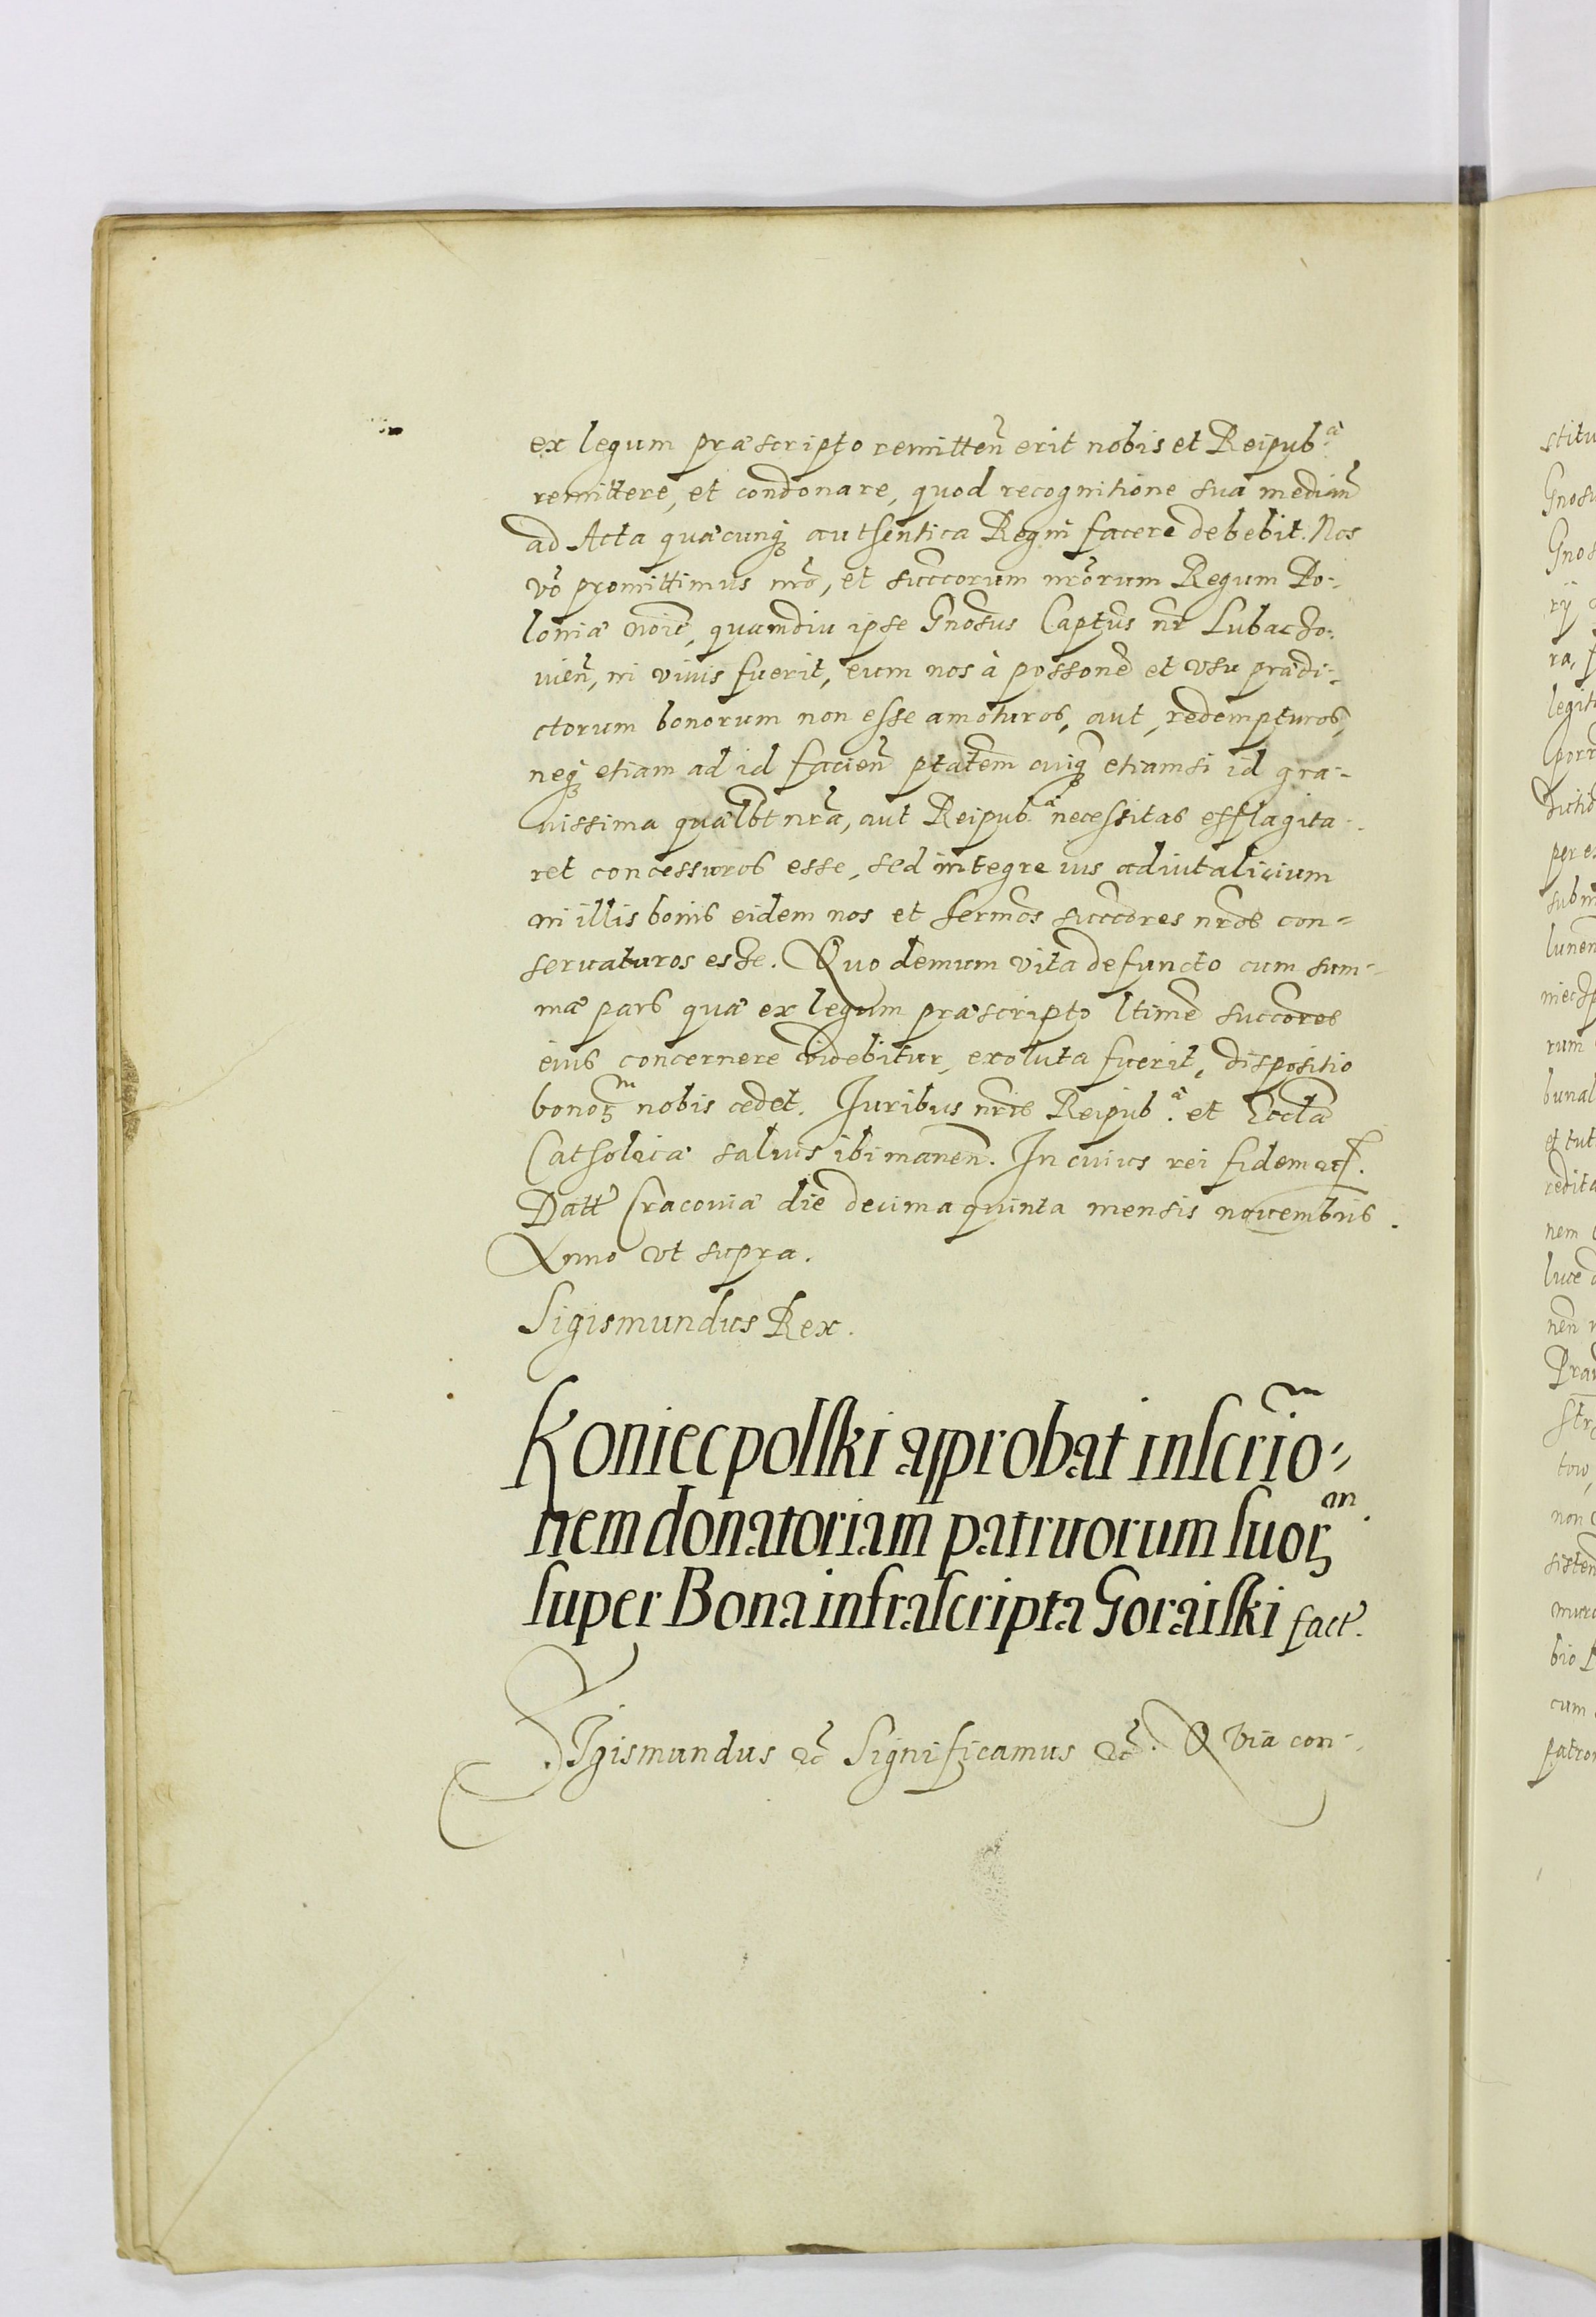 ex legum præscripto remitten̄ erit nobis et Reipub.ᵃᵉ
remittere, et condonare, quod recognitione sua median̄
ad Acta quæcunq́ꝫ authentica Regni facere debebit. Nos
vo᷃ promittimus nr̃o, et succorum nr̃orum Regum Po-
loniæ noi͠e, quamdiu ipse Gnosus Captus nr̃ Lubacho-
uien̄, in viuis fuerit, eum nos à possone᷃ et vsu prædi-
ctorum bonorum non esse amoturos, aut, redempturos,
neqꝫ etiam ad id facien̄ ptatem᷃ cuiqꝫ etiamsi id gra-
uissima quælbt nr̃a, aut Reipub.ᵃᵉ necessitas efflagita-
ret concessuros esse, sed integre ius aduitalicium
in illis bonis eidem nos et sermos᷃ succcores᷃ nr̃os con-
seruaturos esse. Quo demum vita defuncto cum sum-
mæ pars quæ ex legum præscripto ltime᷃ succores
eius concernere videbitur, exoluta fuerit, dispositio
bonoꝝᵐ nobis cedet. Juribus nr̃is Reipub.ᵃᵉ et Eccl͠æ
Catholicæ saluis ibi manen̄. In cuius rei fidem etc̃.
Datt᷃ Cracouiæ die᷃ decima quinta mensis nouembris.
Anno vt supra.
Sigismundus Rex.
Koniecpolski approbat inscrio᷃-
nem donatoriam patruorum suoꝝᵐ.
super Bona infrascripta Goraiski fact᷃.
SIgismundus etc̃ Significamus etc̃. Quia con-
stitu
Gnosu
Gnos
rij
ra,
legiti
porr
dictio
per e
subm
lunen
niecp
rum
bunal
et tut
redita
nem
luce
nen̄
Præ
tow,
non
sisten̄
bio
cum
patro